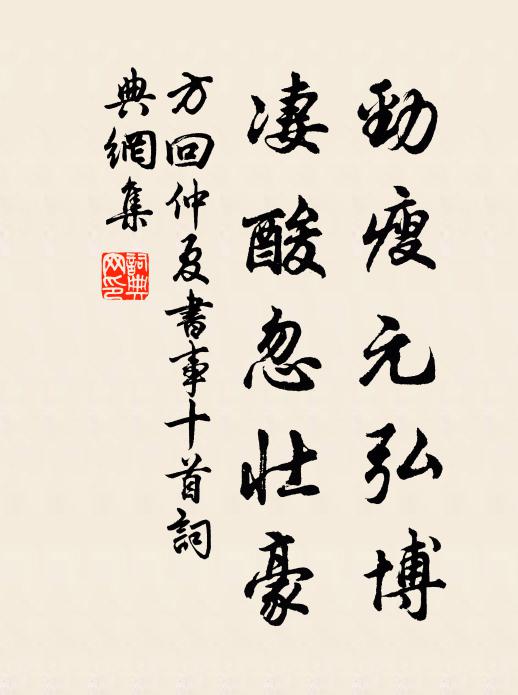 勁瘦元弘博
淒酸忽壯豪
方回仲夏書事十首詞
典網集
詞典網印